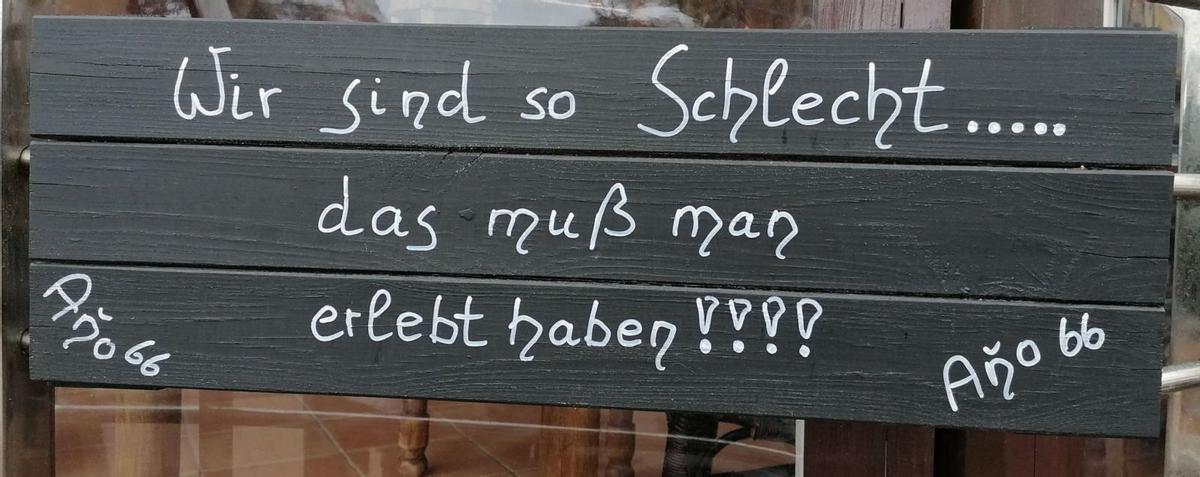 Wir sind so Schlecht.....
das muß man
erlebt haben!!!!
Año 66
Año 66